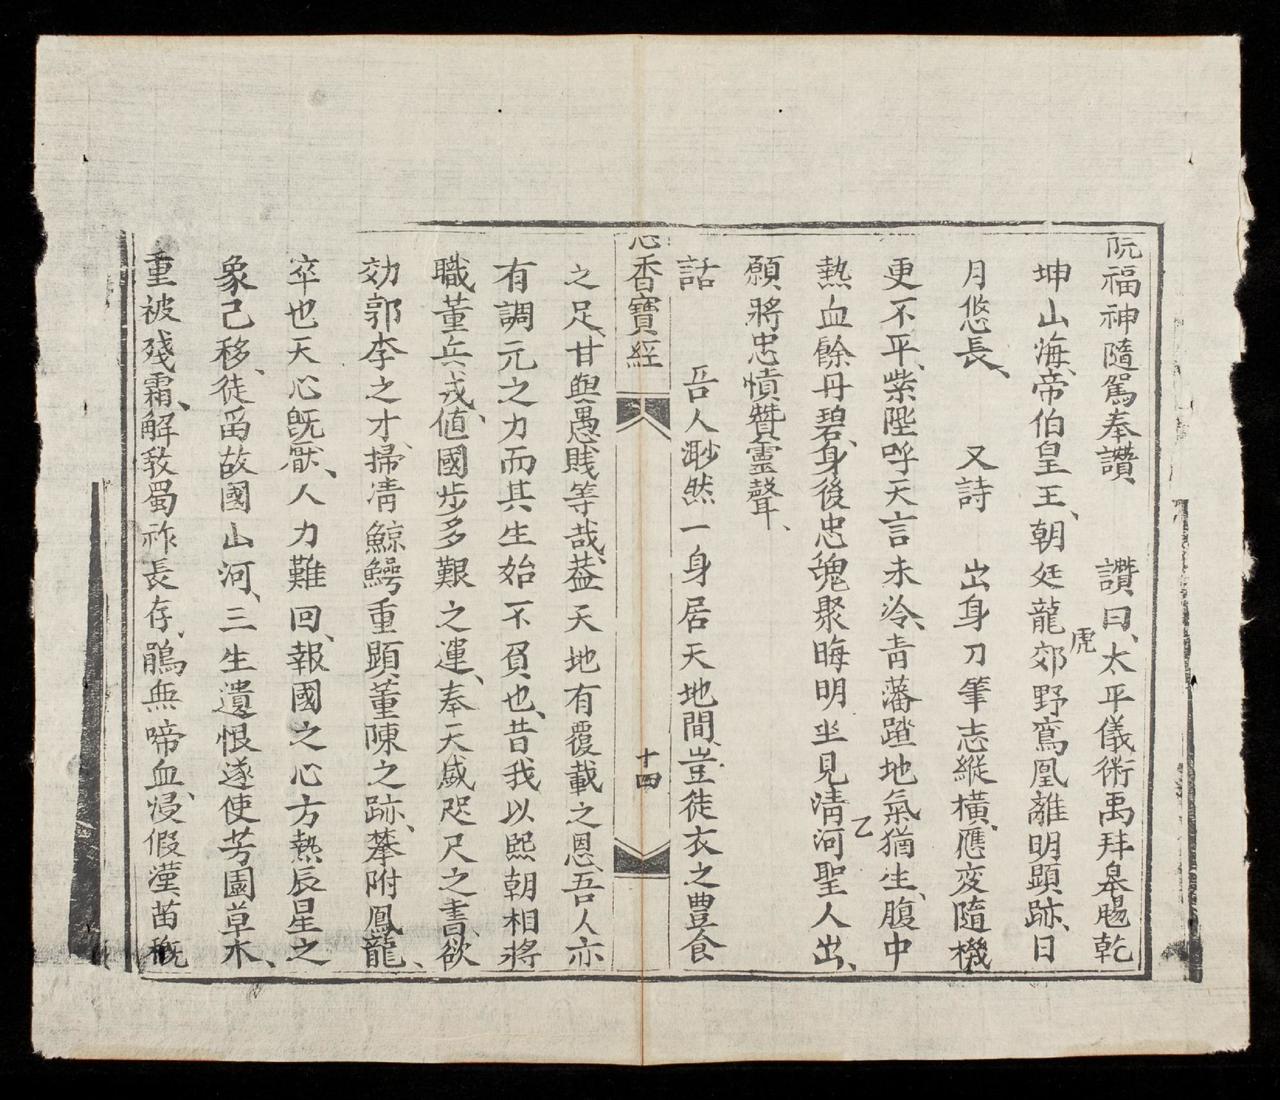 阮福神隨駕奉讚　讚曰、太平儀術禹拜皋颺乾
坤山海、帝伯皇王、朝廷龍虎郊野鸞凰離明顯跡、日
月悠長、　又詩　出身刀筆志縱橫、應変隨機
更不平、柴陛呼天言未冷、青藩踏地氣猶生、腹中
熱血餘丹碧、身後忠魂聚晦明坐見清河聖人出、
願將忠憤贊靈聲、
話　吾人渺然一身居天地間、豈徒衣之豊食
心香寶經
十四
之足、甘與愚賤等哉、蓋天地有覆載之恩、吾人亦
有調元之力而其生始不負也、昔我以熙朝相將
職董兵戎、值國步多艱之運、奉天威咫尺之書、欲
効郭李之才、掃清鯨鱷重顯董陳之跡、攀附鳳龍、
卒也天心既厭、人力難回、報國之心方熱辰星之
象已移、徒留故國山河、三生遺恨遂使芳園草木、
重被殘霜、解教蜀祚長存、鵑無啼血、浸假漢苗穊
乙